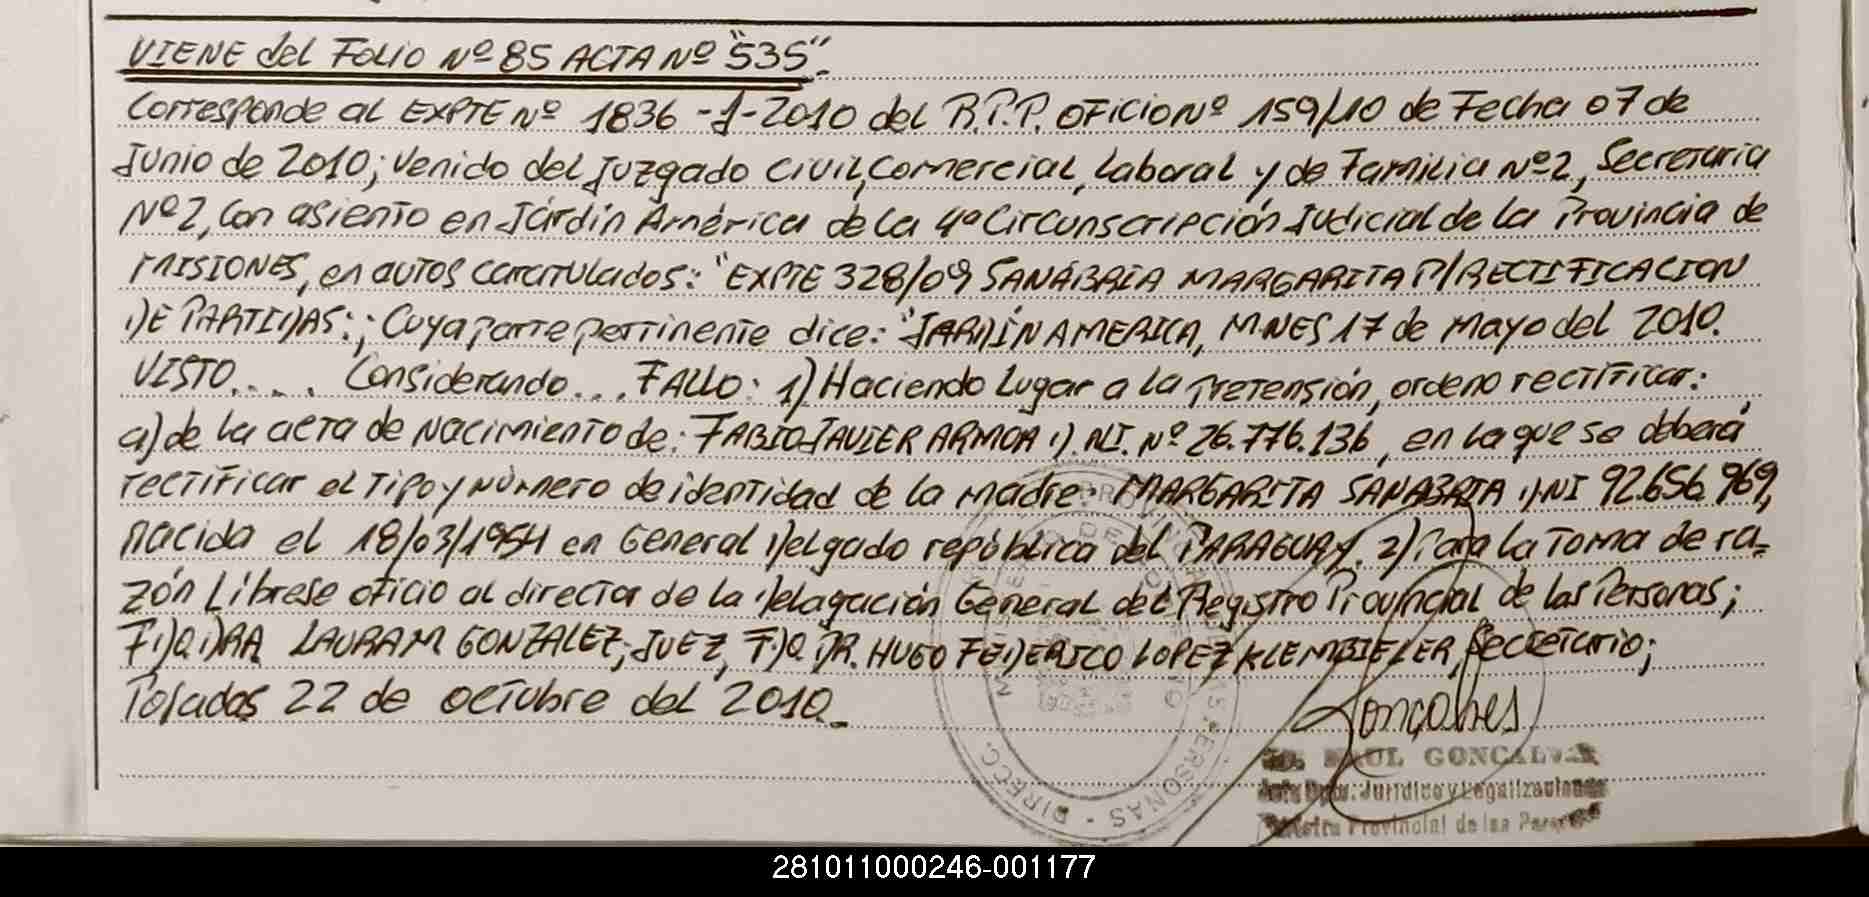 VIENE del Folio Nº 85 ACTA Nº "535".
Corresponde al EXPTE Nº 1836 -J-2010 del R.P.P. OFICIO Nº 159/10 de Fecha 07 de
Junio de 2010; venido del Juzgado Civil, Comercial, Laboral y de Familia Nº2, Secretaria
Nº2, con asiento en Járdín América de la 4º Circunscripción Judicial de la Provincia de
MISIONES, en autos caratulados: "EXPTE 328/09 SANABRIA MARGARITA P/RECTIFICACION
DE PARTIDAS:; Cuya parte pertinente dice: "JARDÍN AMERICA, MNES 17 de Mayo del 2010.
VISTO.... Considerando... FALLO: 1) Haciendo Lugar a la Pretensión, ordeno rectificar:
a) de la acta de Nacimiento de: FABIO JAVIER ARMOA D.NI. Nº 26.776.136, en la que se deberá
rectificar el Tipo y Número de identidad de la madre: MARGARITA SANABRIA D.NI 92.656.969,
nacida el 18/03/1954 en General Delgado república del PARAGUAY. 2) Para la Toma de ra=
zón Líbrese oficio al director de la Delagación General del Registro Provincial de las Personas;
F)Q)DRA. LAURA M GONZALEZ, JUEZ, F)Q. DR. HUGO FEDERICO LOPEZ KLEMBIELER, Secretario;
Posadas 22 de octubre del 2010.
Gonçalves
RAUL GONCALVES
Jurídico y Legalizaciones
Registro Provincial de las Personas
281011000246-001177